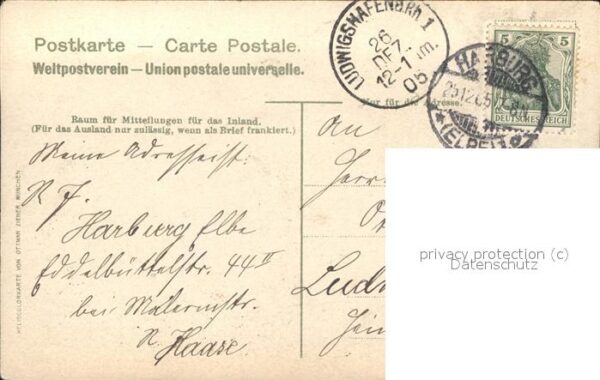 Postkarte — Carte Postale.
Weltpostverein — Union postale universelle.
LUDWIGSHAFEN (RH. 1
26
DEZ.
12-1 Nm.
05
5 5
DEUTSCHES REICH
HARBURG
25.12.05
* (ELBE) 1 *
Nur für die Adresse.
Raum für Mitteilungen für das Inland.
(Für das Ausland nur zulässig, wenn als Brief frankiert.)
Meine Adresse ist:
Harburg Elbe
Eddelbüttelstr. 44 II
bei Malermstr.
Haase
An
Herr
Lud
HELIOCOLORKARTE VON OTTMAR ZIEHER, MÜNCHEN
privacy protection (c)
Datenschutz